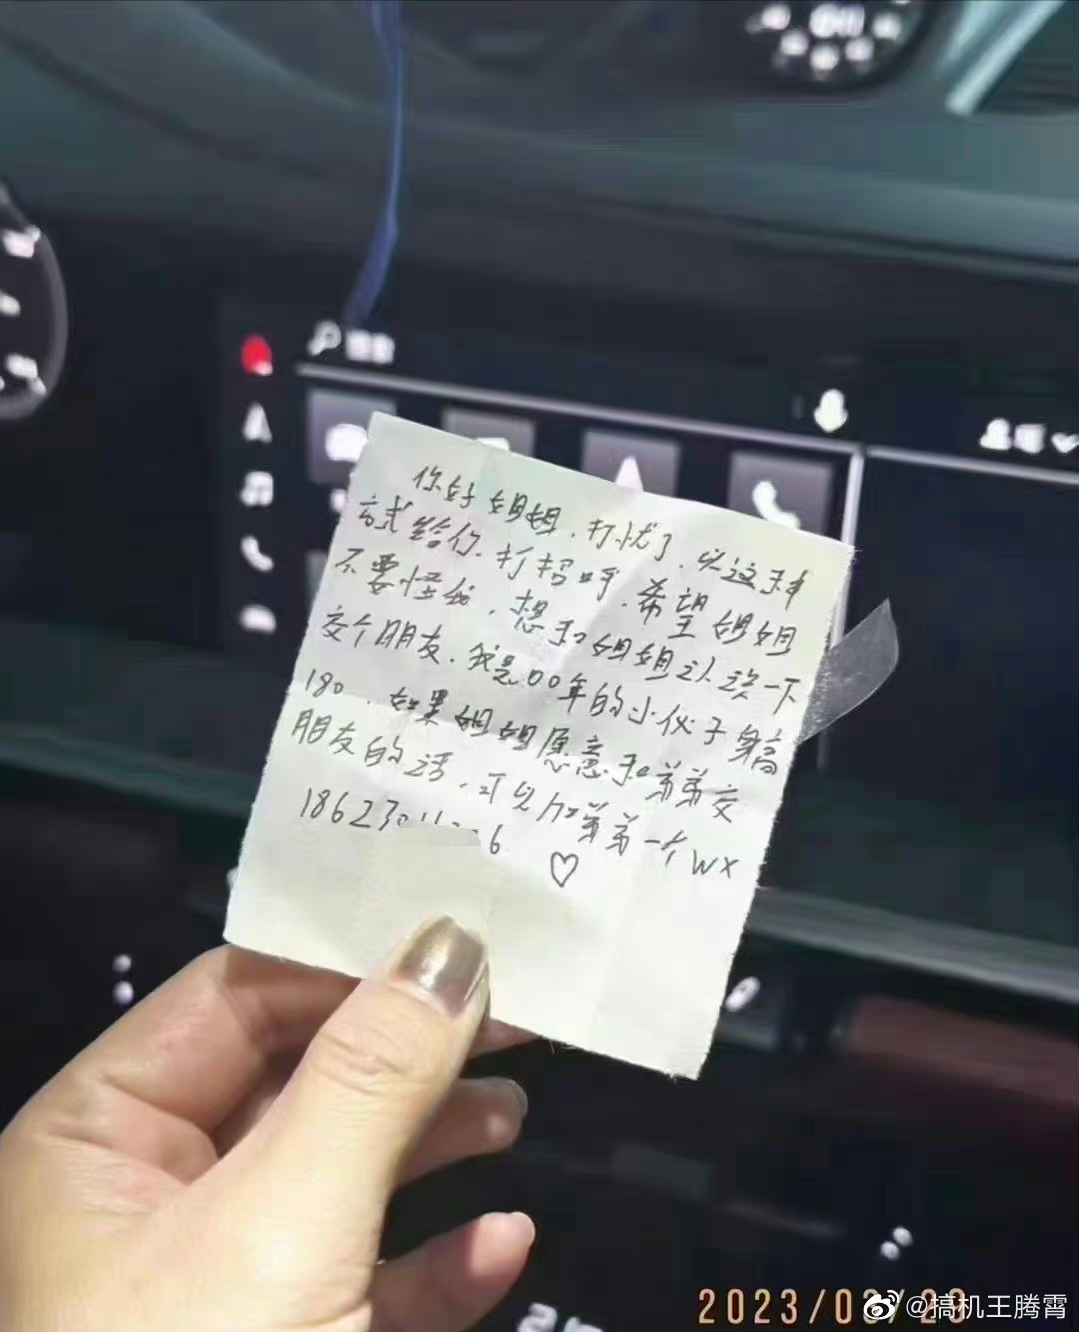 你好姐姐，打扰了，以这种
方式给你打招呼，希望姐姐
不要怪我，想和姐姐认识一下
交个朋友，我是00年的小伙子身高
180，如果姐姐愿意和弟弟交
朋友的话，可以加弟弟一个WX
18623 6 ♡
2023/03/23
@搞机王腾霄